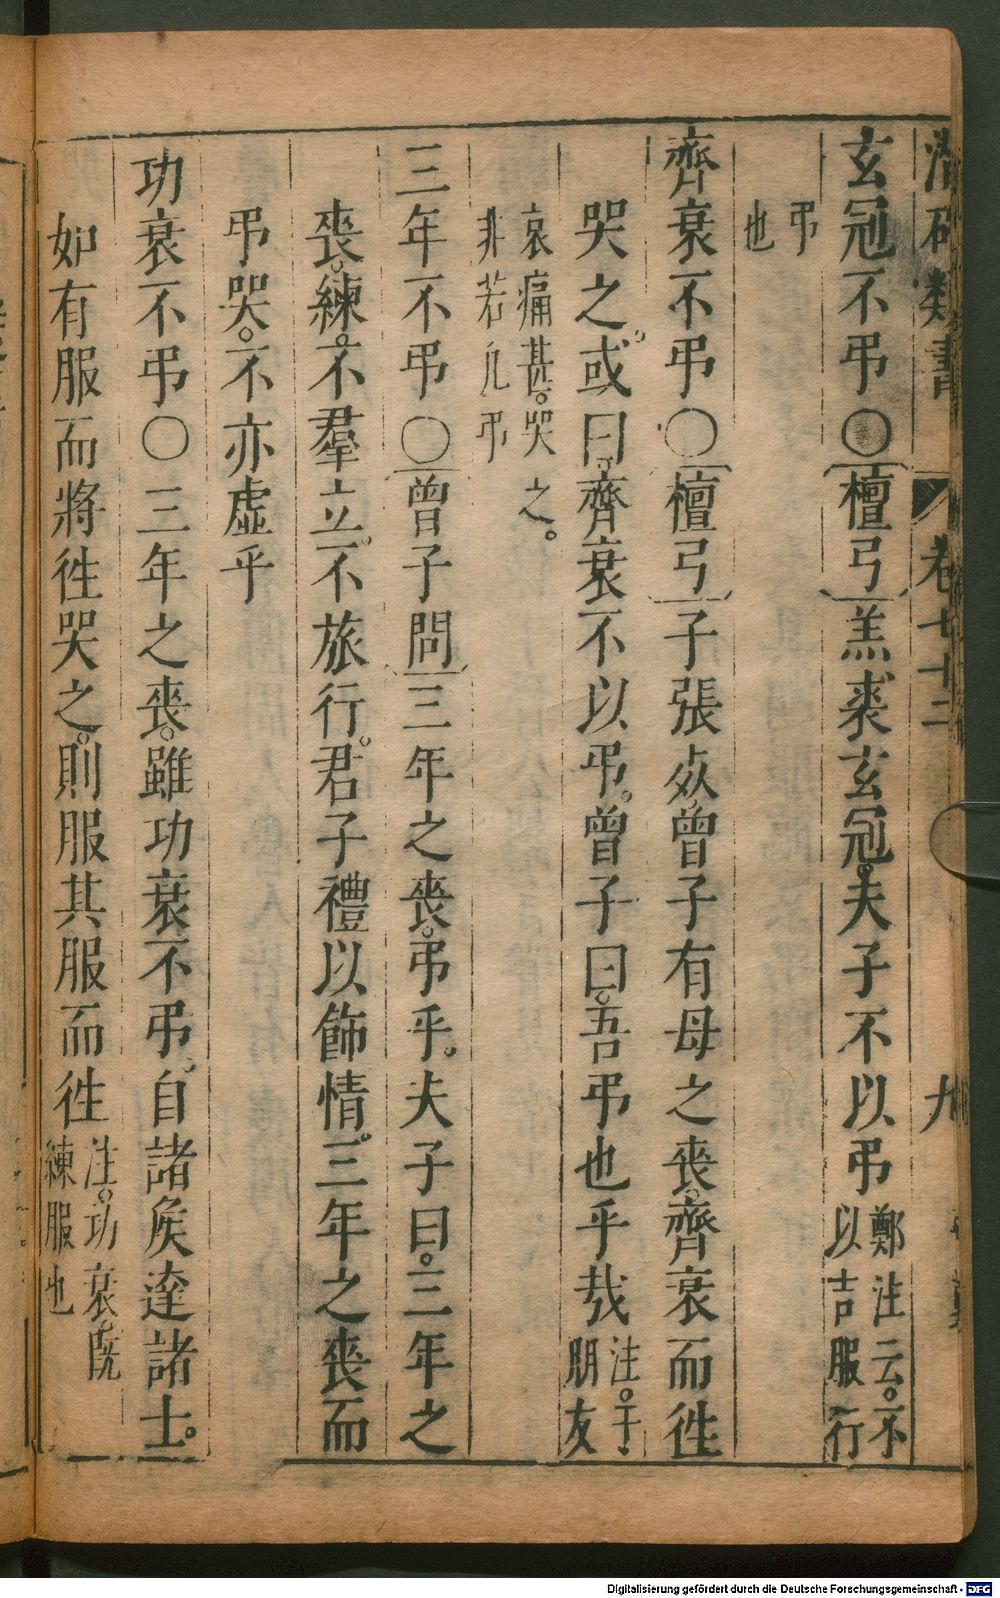 潛確類書 卷七十二 九
玄冠不弔〇檀弓羔裘玄冠。夫子不以弔鄭注云。不以吉服行
弔也
齊衰不弔〇檀弓子張死。曾子有母之喪。齊衰而徃
哭之。或曰。齊衰不以弔。曾子曰。吾弔也乎哉注。于朋友
哀痛甚。哭之。非若凡弔
三年不弔〇曾子問三年之喪。弔乎。夫子曰。三年之
喪。練。不羣立。不旅行。君子禮以飾情。三年之喪而
弔哭。不亦虛乎
功衰不弔〇三年之喪。雖功衰不弔。自諸矦達諸士。
如有服而將徃哭之。則服其服而徃注。功衰。旣練服也
Digitalisierung gefördert durch die Deutsche Forschungsgemeinschaft - DFG